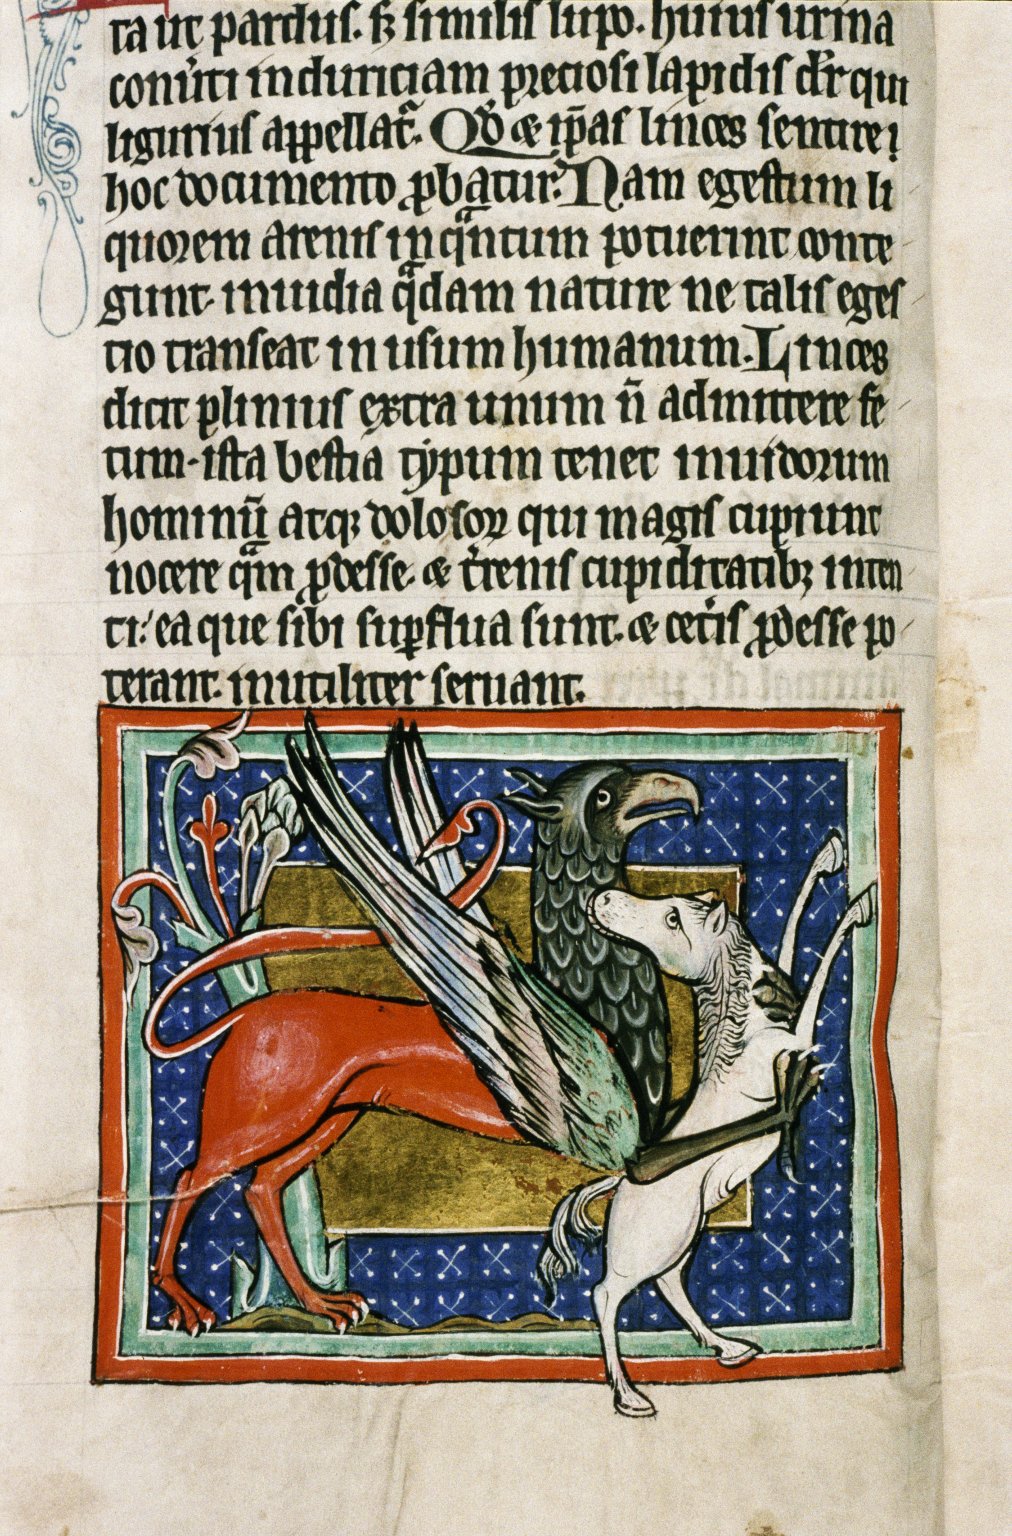 ta ut pardus. sꝫ similis lupo. huius urina
conu̓ti in duriciam preciosi lapidis dr̄ qui
ligurius appellat᷑. Qd̓ ⁊ ip̄as linces sentire
hoc documento ꝓbatur. Nam egestum li
quorem arenis in qͣntum potuerint conte
gunt. inuidia qͣdam nature ne talis eges
tio transeat in usum humanum. Linces
dicit plinius extra unum n̄ admittere fe
tum. ista bestia tẏpum tenet inuidorum
hominū atqꝫ dolosoꝝ qui magis cupiunt
nocere qͣm ꝓdesse. ⁊ t̓renis cupiditatibꝫ inten
ti. ea que sibi suꝑflua sunt. ⁊ cet̓is ꝓdesse po
terant. inutiliter seruant.